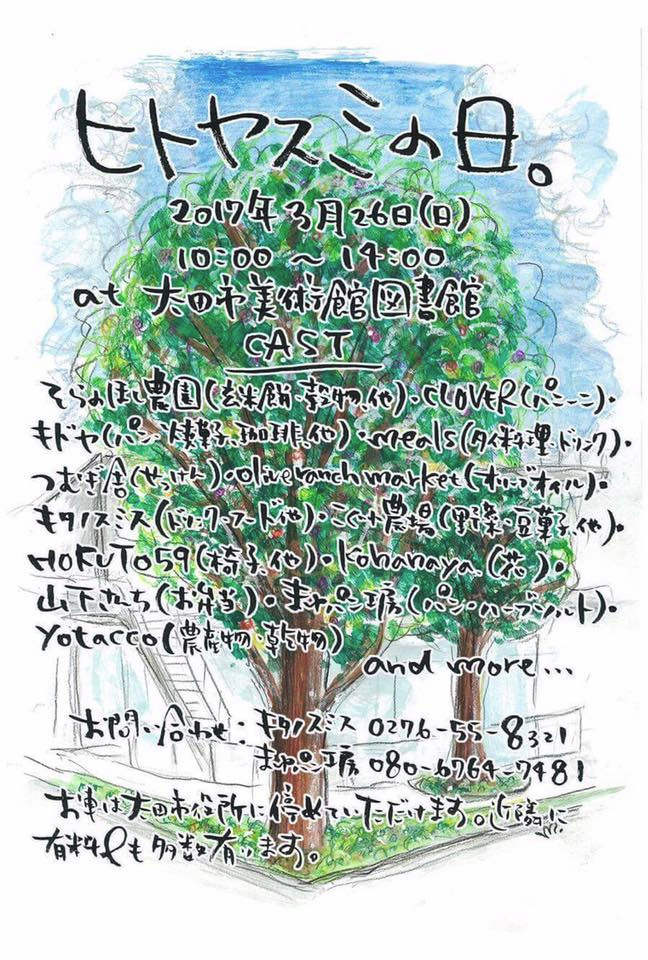 ヒトヤスミの日。
2017年3月26日(日)
10:00 〜 14:00
at 太田市美術館図書館
CAST
そらのほし農園(玄米餅・穀物、他)・CLOVER(パニーニ)・
キドヤ(パン・焼菓子、珈琲、他)・meals(タイ料理・ドリンク)・
つむぎ舎(せっけん)・oliveranchmarket(オリーブオイル)・
キタノスミス(ドリンク・フード他)・こぐれ農場(野菜・豆菓子、他)・
HOKUTO59(椅子、他)・kohanaya.(花)・
山下さんち(お弁当)・まわパン工房(パン・ハーブソルト)・
yotacco(農産物・乾物)
and more...
お問い合わせ:キタノスミス 0276-55-8321
まわパン工房 080-6764-7481
お車は太田市役所に停めていただけます。近隣に
有料Pも多数有ります。